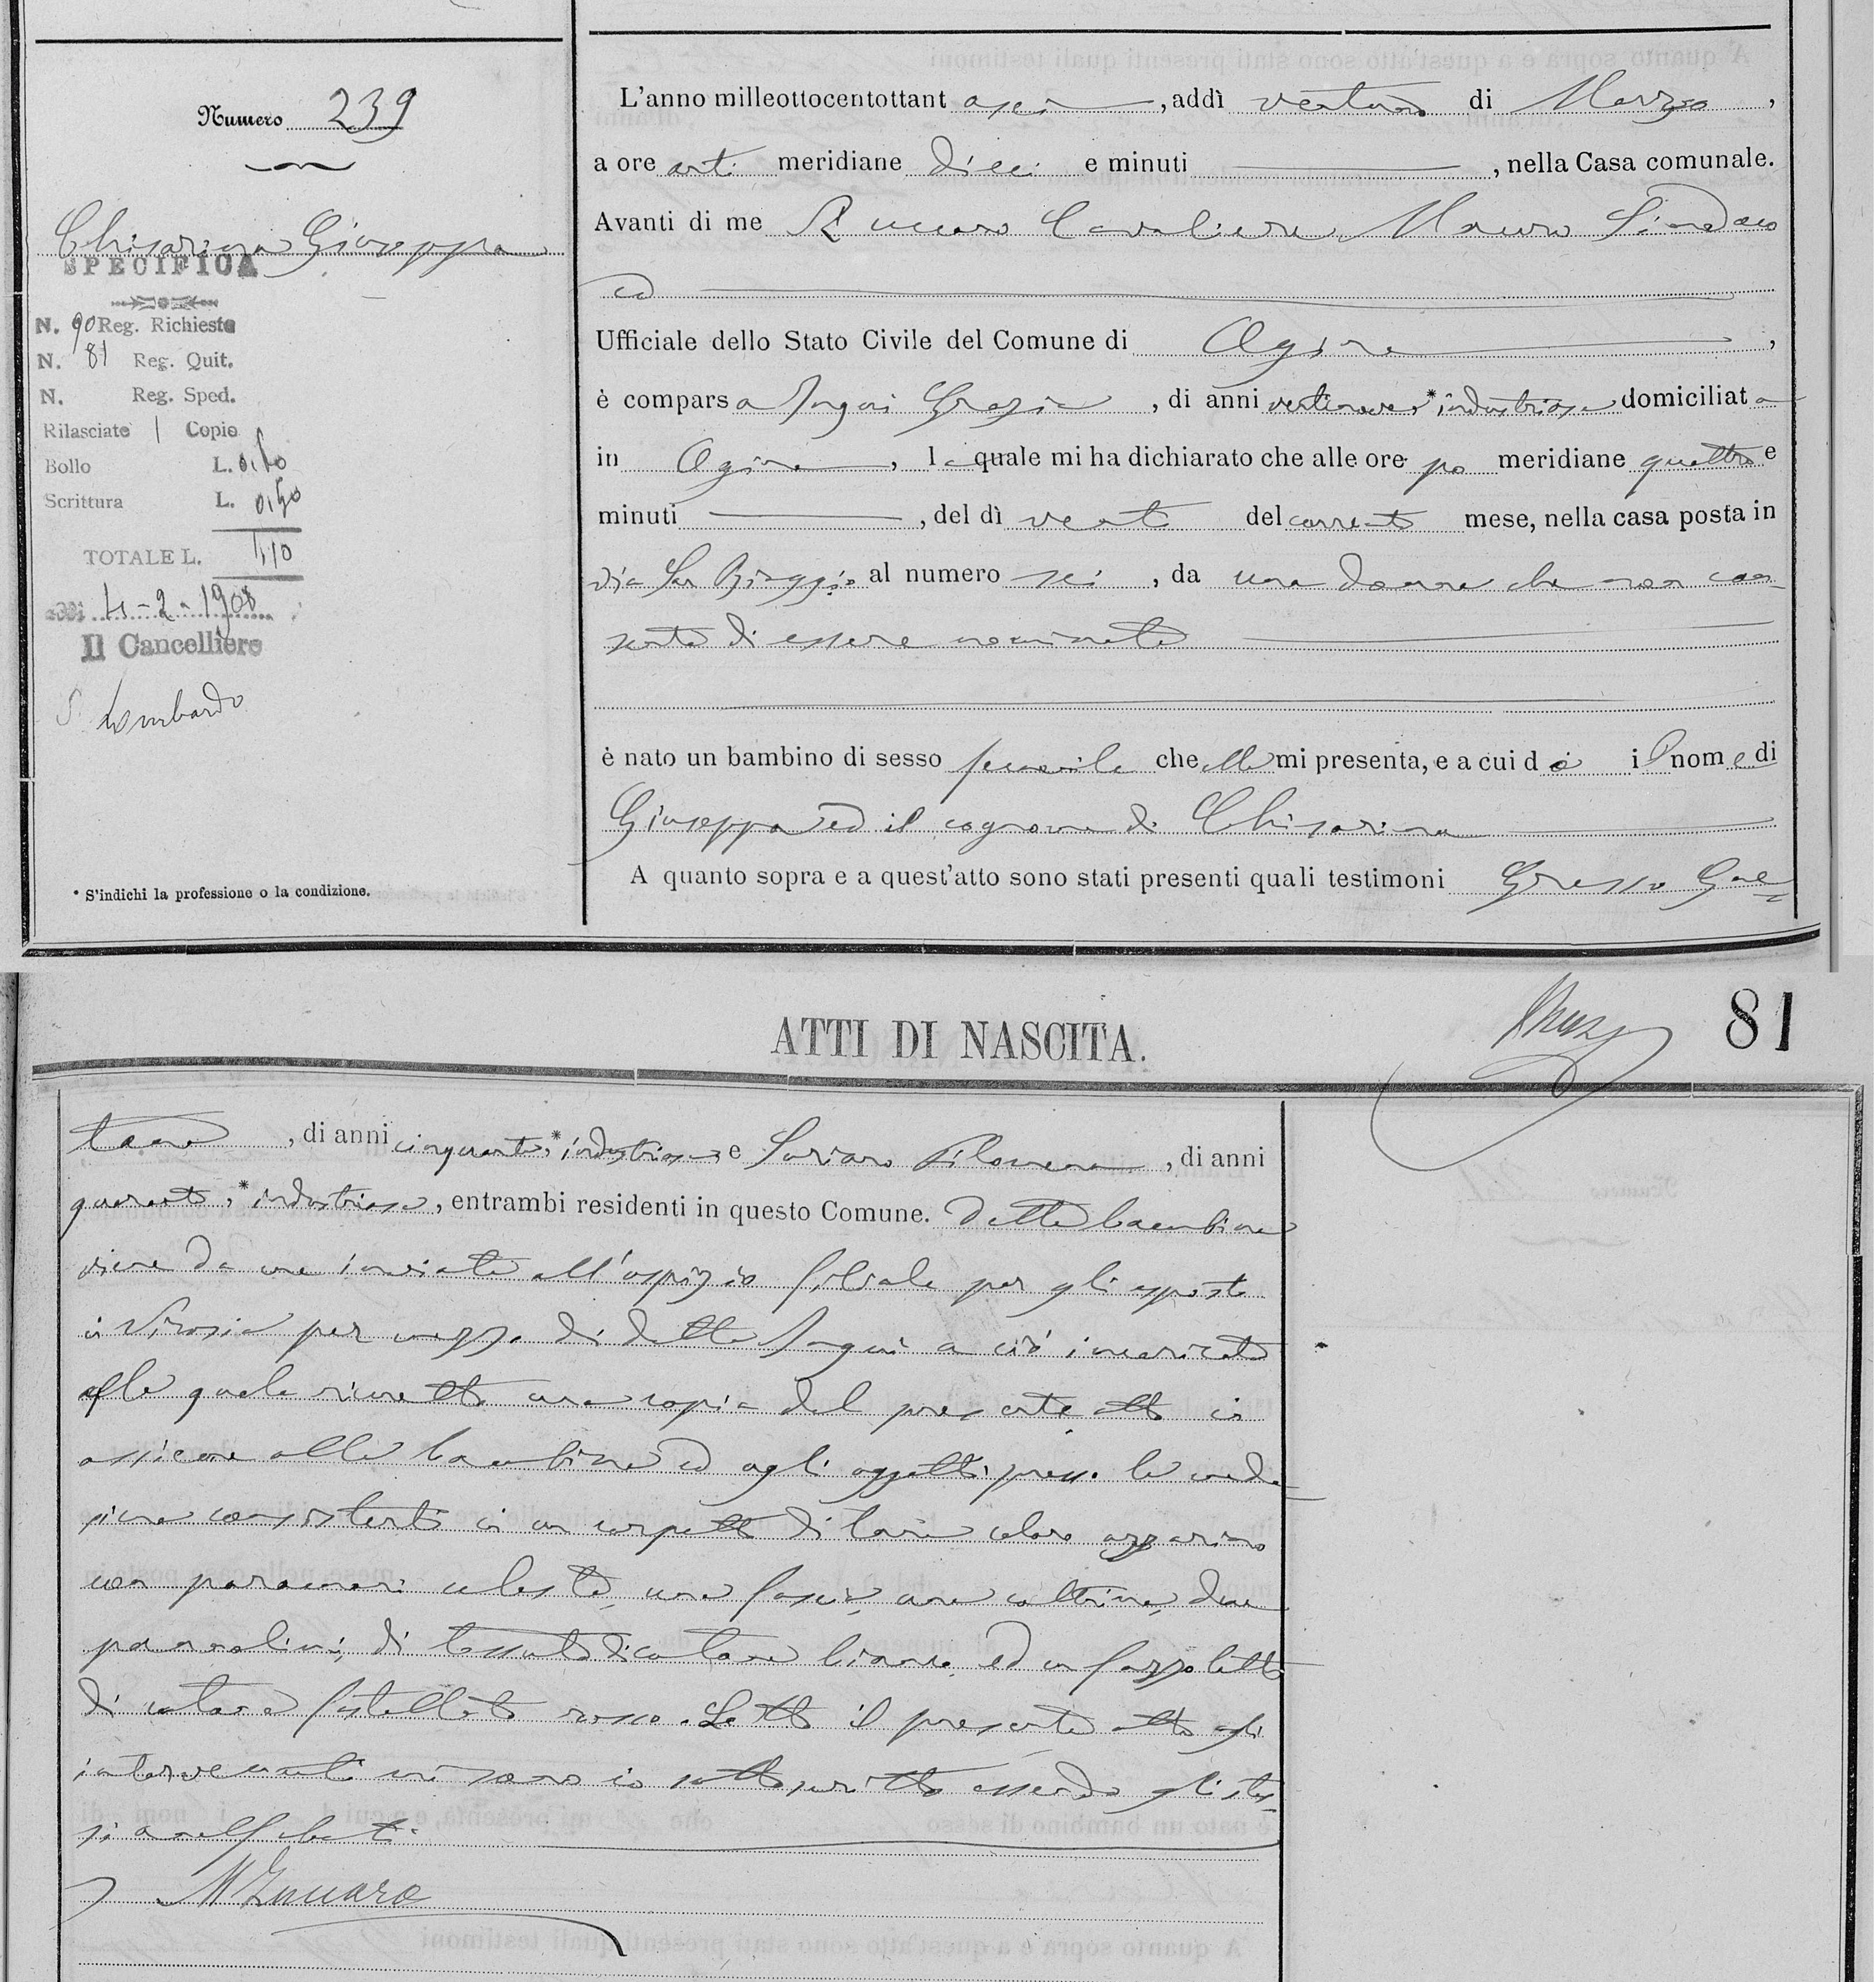 Numero 239
Chisarina Giuseppa
SPECIFICA
N. 90 Reg. Richieste
N. 81 Reg. Quit.
N. Reg. Sped.
Rilasciate 1 Copie
Bollo L. 0,60
Scrittura L. 0,50
TOTALE L. 1,10
4-2-1908
Il Cancelliere
S. Lombardo
* S'indichi la professione o la condizione.
L'anno milleottocentottant asei, addì ventuno di Marzo,
a ore anti meridiane dieci e minuti, nella Casa comunale.
Avanti di me Zuccaro Cavaliere Mauro Sindaco
ed
Ufficiale dello Stato Civile del Comune di Agira,
è compars a Grazia, di anni ventinove, * industriosa domiciliata
in Agira, la quale mi ha dichiarato che alle ore po meridiane quattro e
minuti, del dì venti del corrente mese, nella casa posta in
via San Biaggio al numero sei, da una donna che non con-
sente di essere nominata
è nato un bambino di sesso feminile che ella mi presenta, e a cui dò il nome di
Giuseppa ed il cognome di Chisarina
A quanto sopra e a quest'atto sono stati presenti quali testimoni Grasso Gae-
81
ATTI DI NASCITA.
tano, di anni cinquanta, * industrioso e Soriano Filomena, di anni
quaranta, * industriosa, entrambi residenti in questo Comune. Detta bambina
viene da me inviata all'ospizio filiale per gli esposti
in Nicosia per mezzo di detta a ciò incaricata
alla quale rimetto una copia del presente atto in
assieme alla bambina ed agli oggetti presso la mede-
sima consistenti in un corpetto di lana colore azzurino
con paramani celeste, una fascia, una coltrina, due
pannolini, di tessuto di cotone bianco ed un fazzoletto
di cotone fastellato rosso. Letto il presente atto agli
intervenuti mi sono io sottoscritto essendo gli stes-
si analfabeti.
M Zuccaro